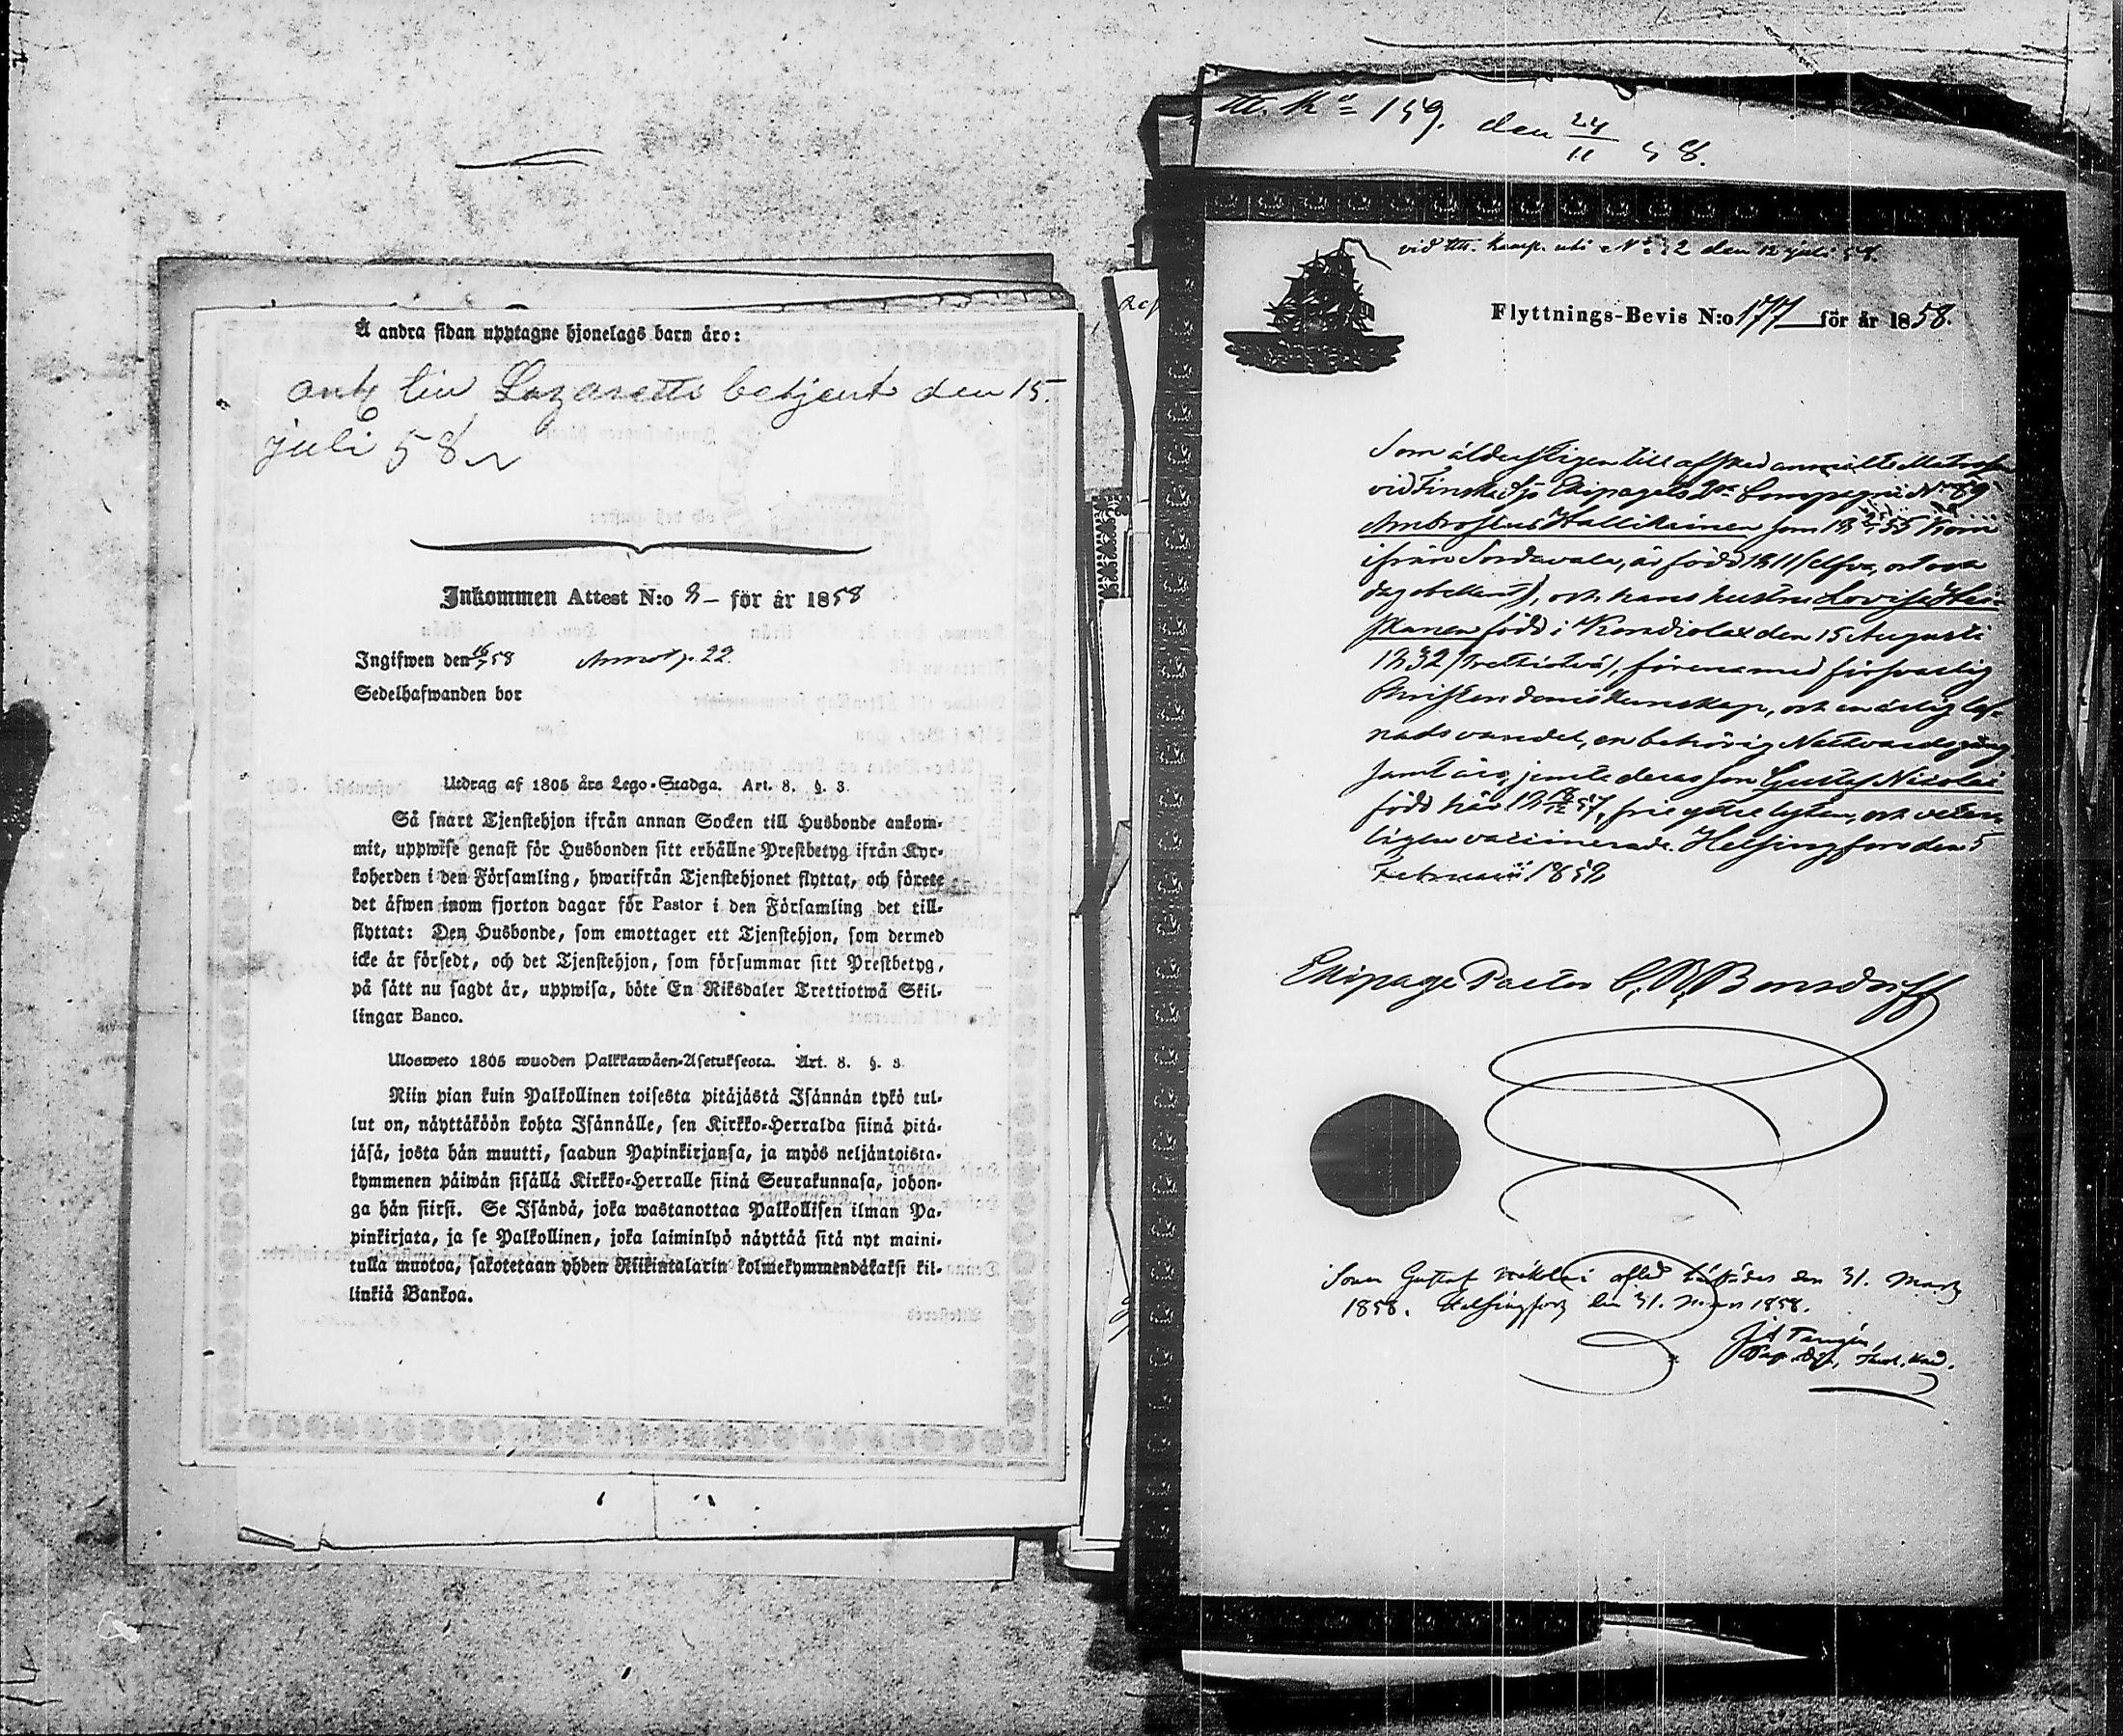 Å andra sidan upptagne hjonelags barn äro:
ant. Lazaretts betjent den 15.
juli 58
Inkommen Attest N:o 8 – för år 1858
Ingifwen den 16/7 58 Annot p. 22.
Sedelhafwanden bor
Utdrag af 1805 års Lego-Stadga. Art. 8. §. 3.
Så snart Tjenstehjon ifrån annan Socken till Husbonde ankom-
mit, uppwise genast för Husbonden sitt erhållne Prestbetyg ifrån Kyr-
koherden i den Församling, hwarifrån Tjenstehjonet flyttat, och förete
det äfwen inom fjorton dagar för Pastor i den Församling det till-
flyttat: Den Husbonde, som emottager ett Tjenstehjon, som dermed
icke är försedt, och det Tjenstehjon, som försummar sitt Prestbetyg,
på sätt nu sagdt är, uppwisa, böte En Riksdaler Trettiotwå Skil-
lingar Banco.
Ulosweto 1805 wuoden Palkkawäen-Asetuksesta. Art. 8. §. 3.
Niin pian kuin Palkollinen toisesta pitäjästä Isännän tykö tul-
lut on, näyttäköön kohta Isännälle, sen Kirkko-Herralda siinä pitä-
jäsä, josta hän muutti, saadun Papinkirjansa, ja myös neljäntoista-
kymmenen päiwän sisällä Kirkko-Herralle siinä Seurakunnasa, johon-
ga hän siirsi. Se Isändä, joka wastanottaa Palkollisen ilman Pa-
pinkirjata, ja se Palkollinen, joka laiminlyö näyttää sitä nyt maini-
tulla muotoa, sakotetaan yhden Riikintalarin kolmekymmendäkaksi kil-
linkiä Bankoa.
N:o 159. den 24/11 58.
vid komp. den 12 juli 58.
Flyttnings-Bevis N:o 177 för år 1858.
Som till afsked anmälte Matrosen
vid Finska Sjö Ekipagets 2:a Compagni N:o 89
Ambrosius Hallikainen som 18 55 kom
ifrån Sordavala, är född 1811 (elfva, ort och
dag obekant), och hans hustru Lovisa Hei-
skanen född i Kondiolax den 15 Augusti
1832 (trettiotvå), förena med försvarlig
Christendomskunskap, och en ärlig lef-
nadsvandel, en behörig Nattvardsgång
samt äro, jemte deras son Gustaf Nicolai
född här 18 57, frie yttre lyten, och veter-
ligen vaccinerade. Helsingfors den 5
Februarii 1858
Ekipage Pastor C. B. Bonsdorff
Sonen Gustaf Nikolai afled den 31. Mars
1858. Helsingfors den 31. Mars 1858.